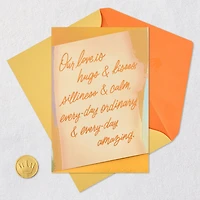 Our love is
hugs & kisses
silliness & calm
every-day ordinary
& every-day
amazing.